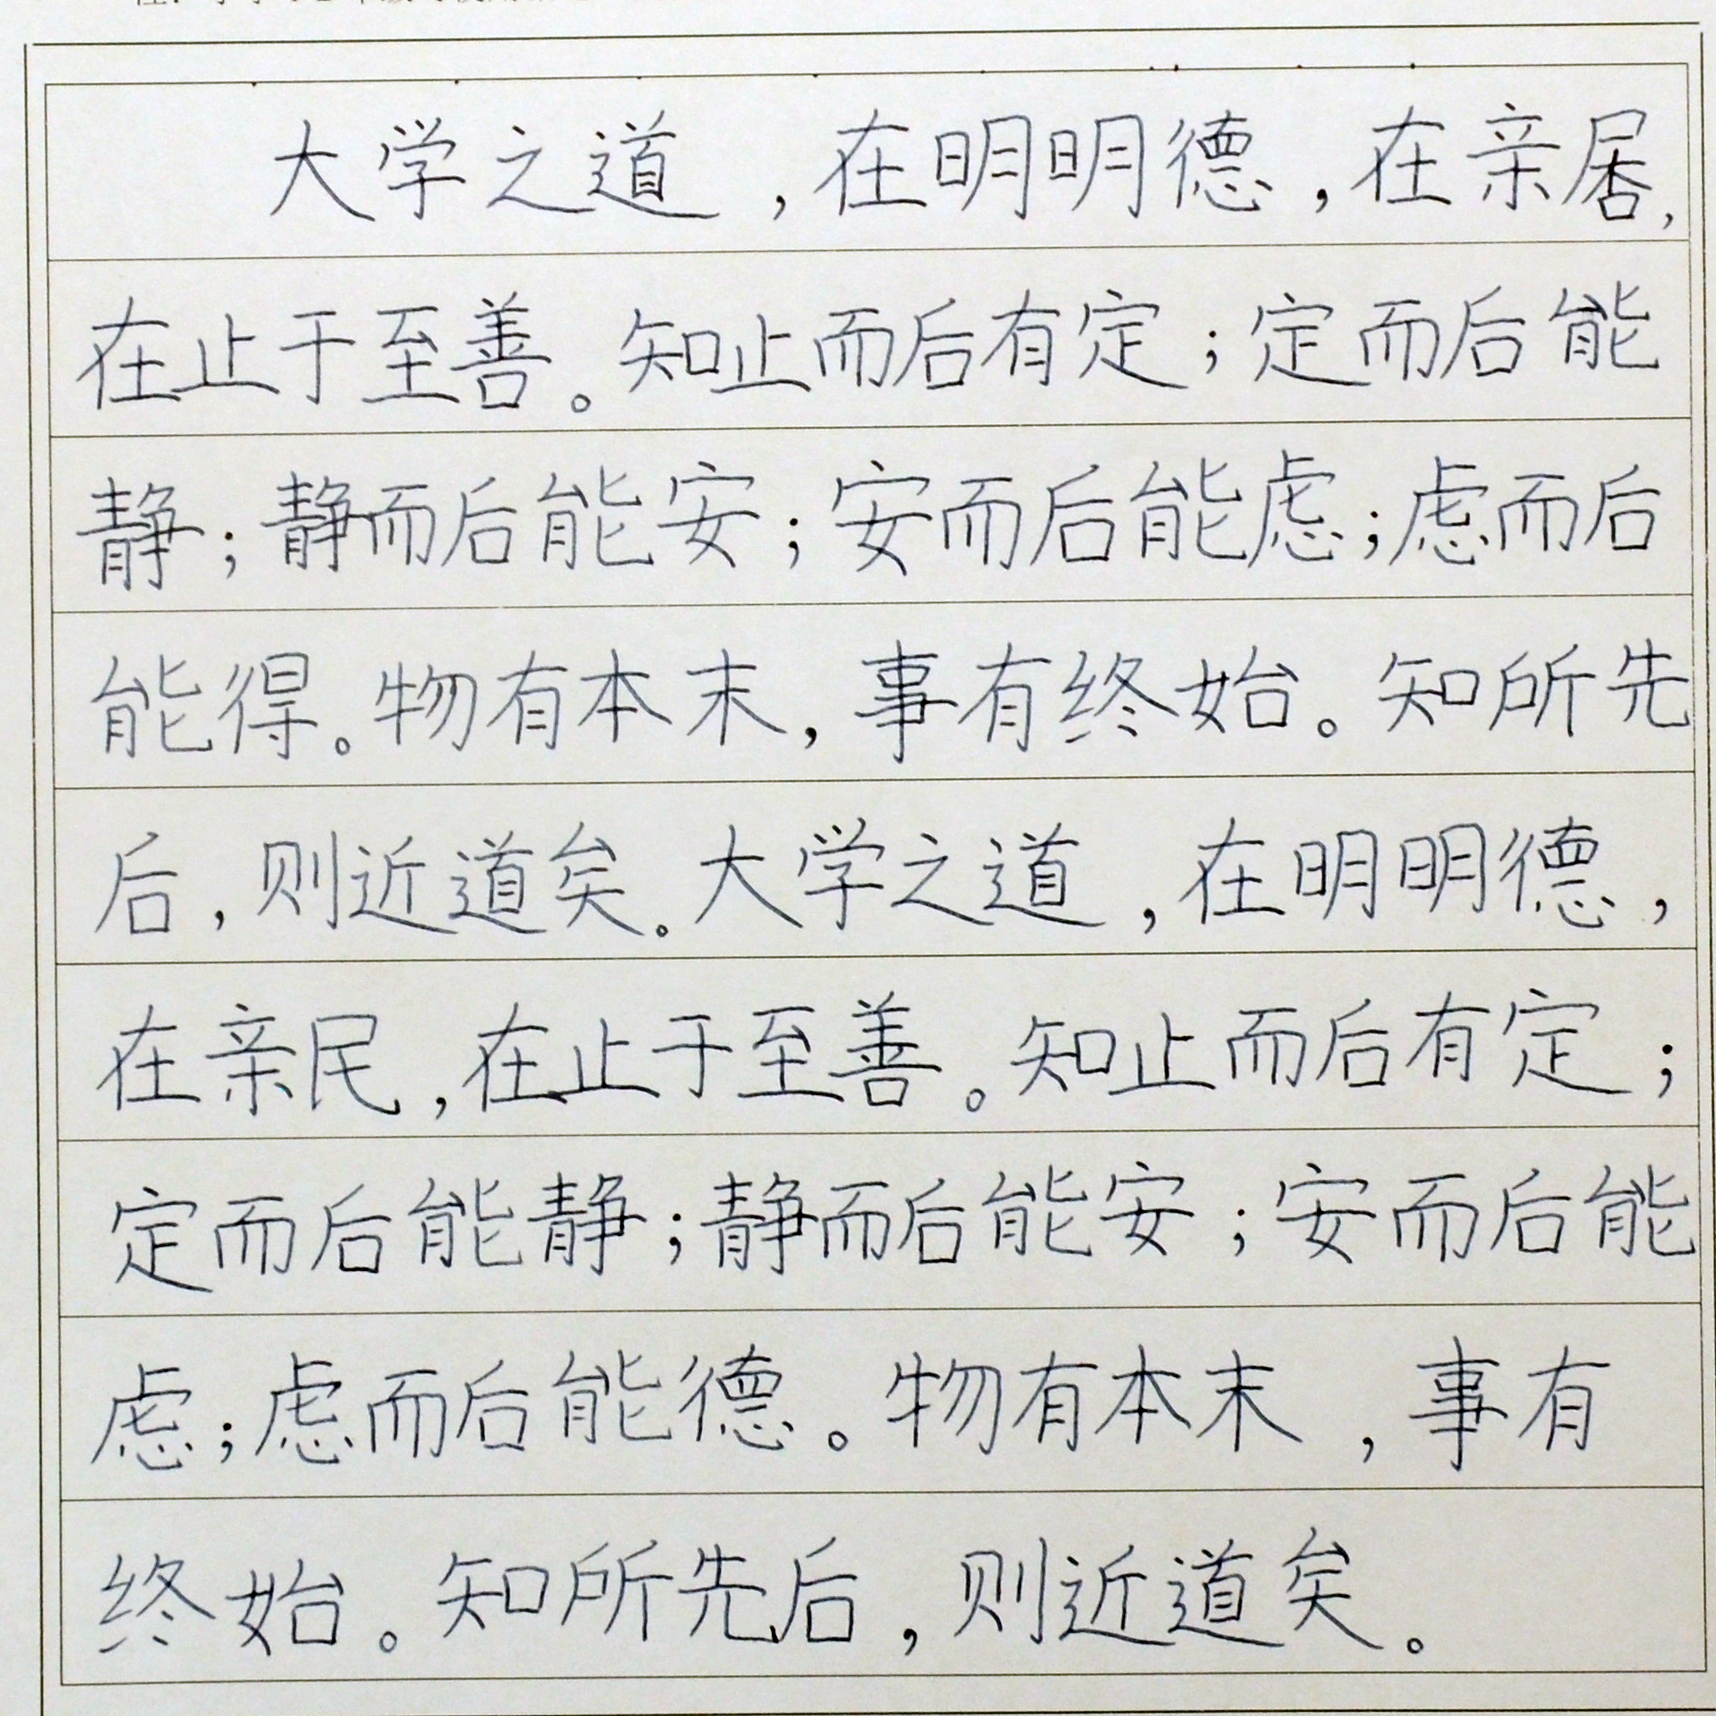 大学之道，在明明德，在亲居，
在止于至善。知止而后有定；定而后能
静；静而后能安；安而后能虑；虑而后
能得。物有本末，事有终始。知所先
后，则近道矣。大学之道，在明明德，
在亲民，在止于至善。知止而后有定；
定而后能静；静而后能安；安而后能
虑；虑而后能德。物有本末，事有
终始。知所先后，则近道矣。